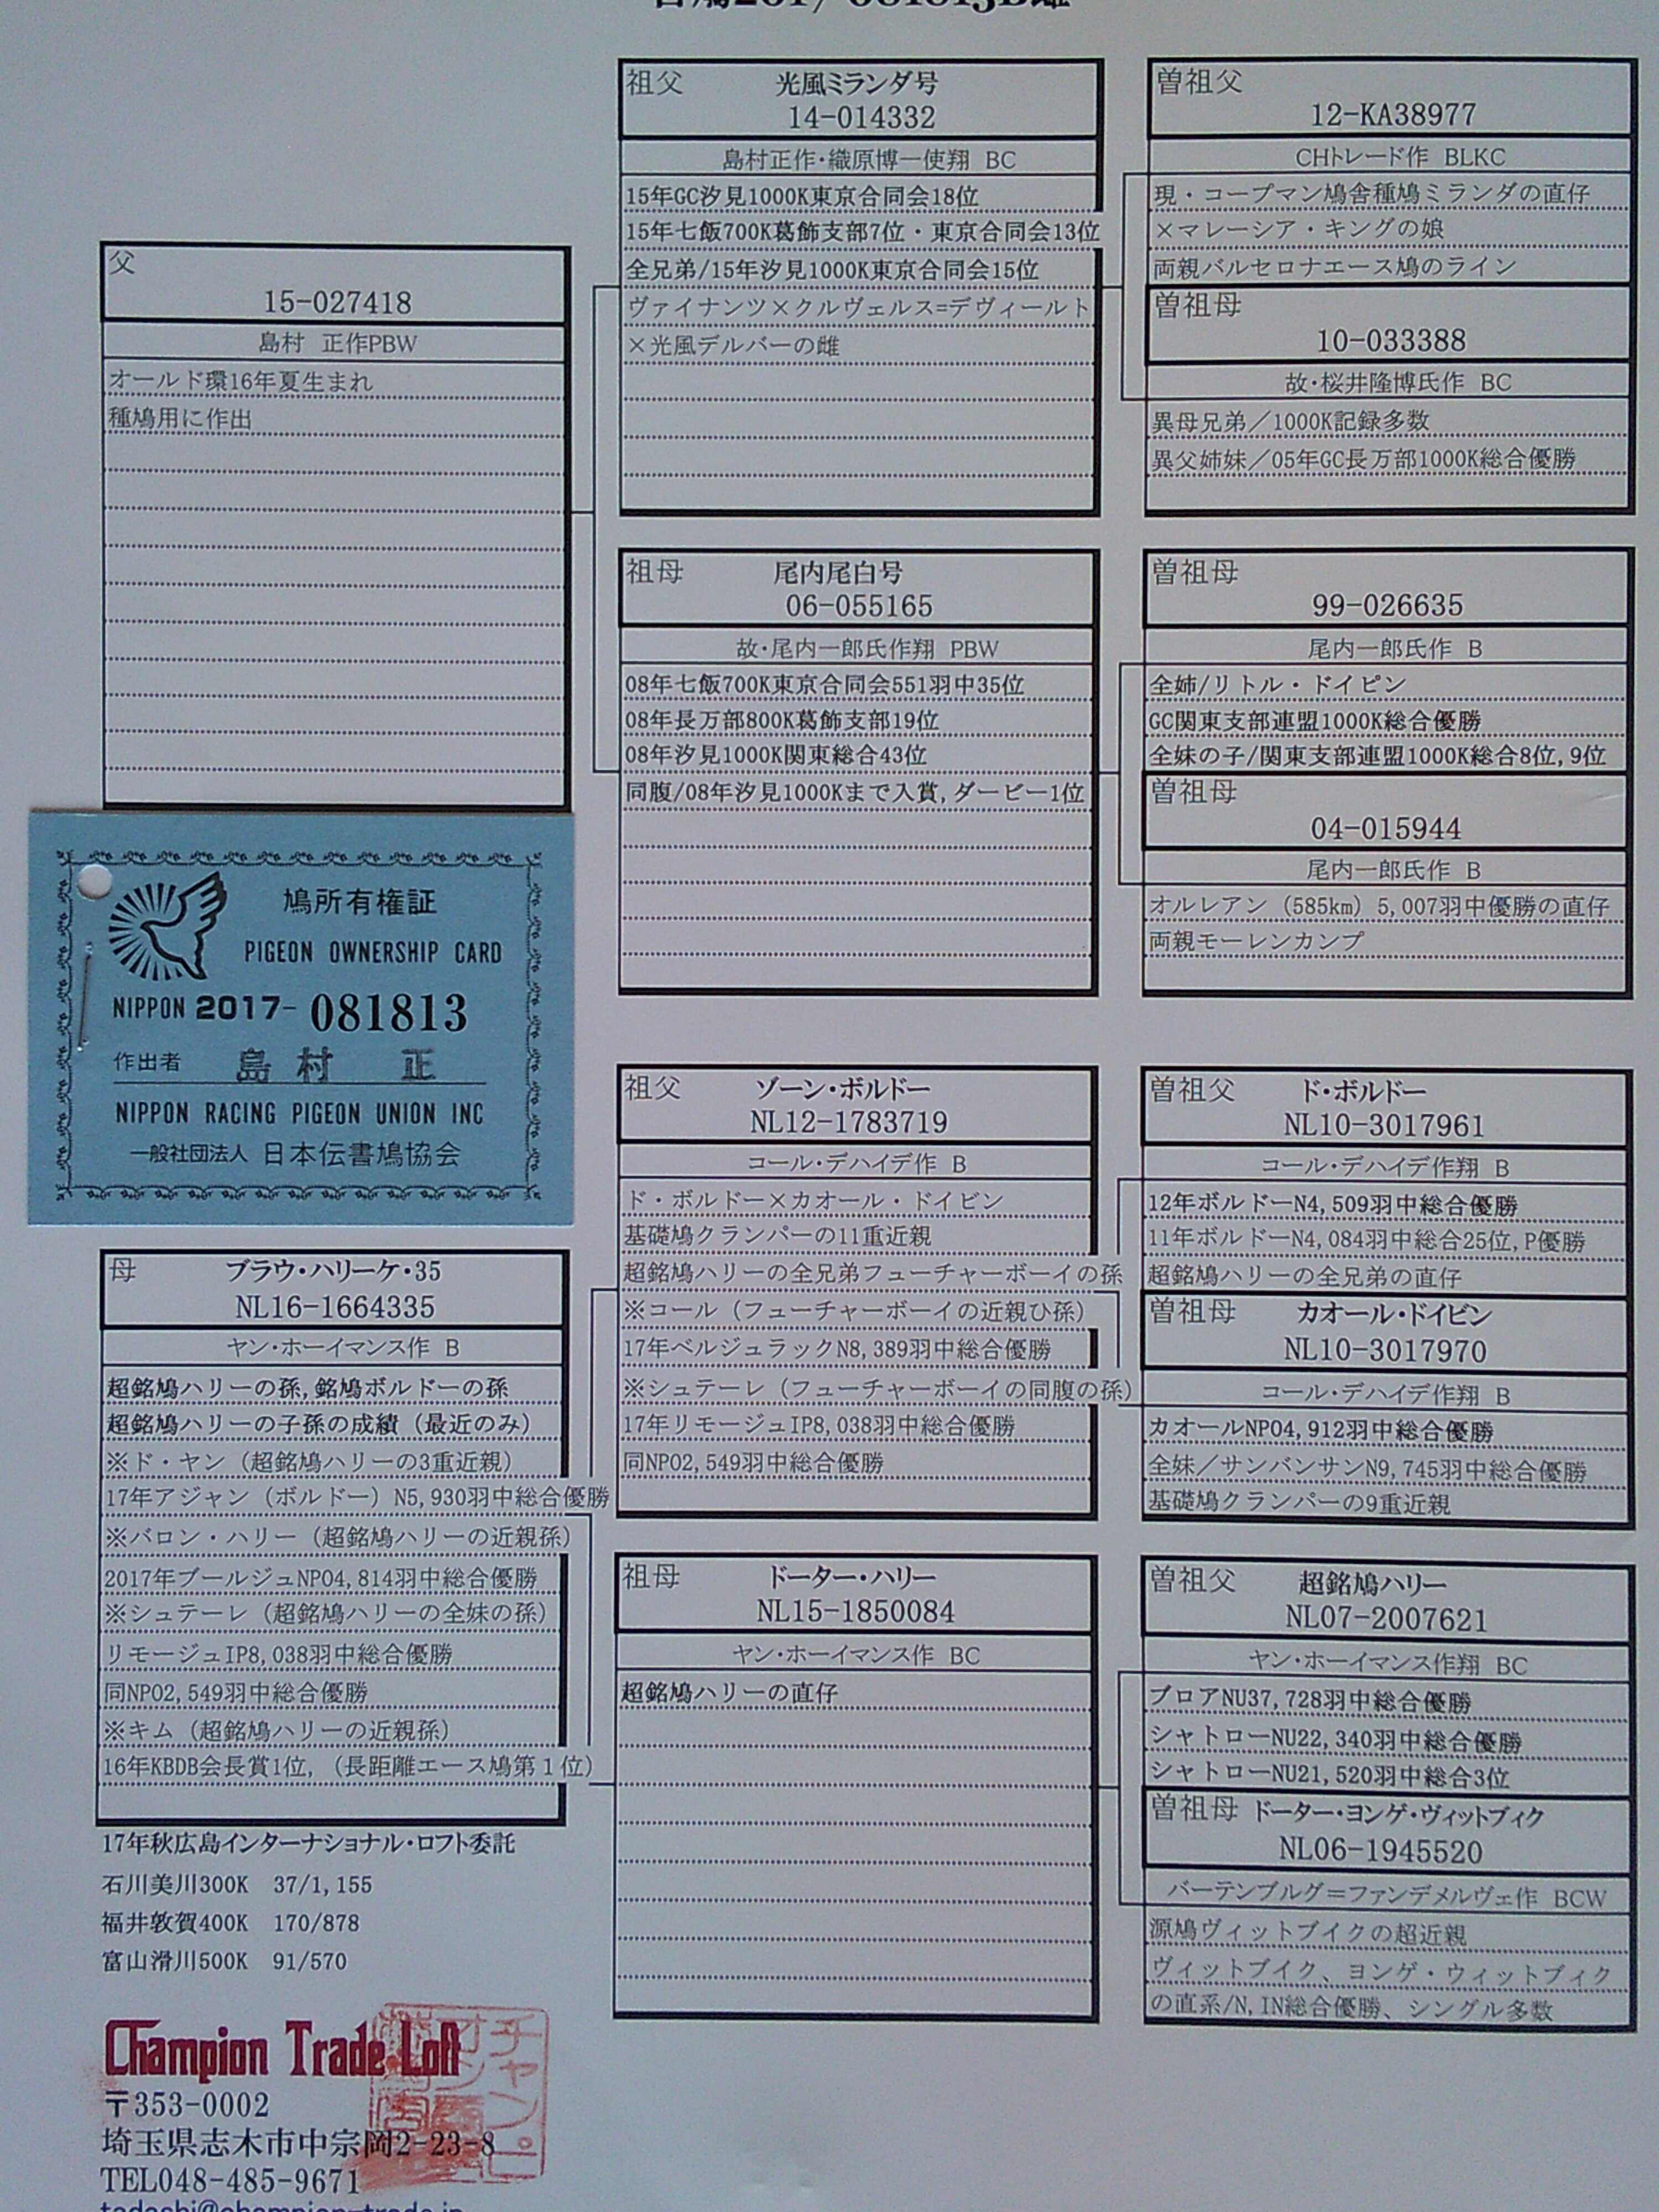 父
15-027418
島村 正作PBW
オールド環16年夏生まれ
種鳩用に作出
鳩所有権証
PIGEON OWNERSHIP CARD
NIPPON 2017- 081813
作出者 島村 正
NIPPON RACING PIGEON UNION INC
一般社団法人 日本伝書鳩協会
母 ブラウ・ハリーケ・35
NL16-1664335
ヤン・ホーイマンス作 B
超銘鳩ハリーの孫,銘鳩ボルドーの孫
超銘鳩ハリーの子孫の成績（最近のみ）
※ド・ヤン（超銘鳩ハリーの3重近親）
17年アジャン（ボルドー）N5,930羽中総合優勝
※バロン・ハリー（超銘鳩ハリーの近親孫）
2017年ブールジュNPO4,814羽中総合優勝
※シュテーレ（超銘鳩ハリーの全妹の孫）
リモージュIP8,038羽中総合優勝
同NPO2,549羽中総合優勝
※キム（超銘鳩ハリーの近親孫）
16年KBDB会長賞1位,（長距離エース鳩第１位）
17年秋広島インターナショナル・ロフト委託
石川美川300K 37/1,155
福井敦賀400K 170/878
富山滑川500K 91/570
Champion Trade Loft
〒353-0002
埼玉県志木市中宗岡2-23-8
TEL048-485-9671
祖父 光風ミランダ号
14-014332
島村正作・織原博一使翔 BC
15年GC汐見1000K東京合同会18位
15年七飯700K葛飾支部7位・東京合同会13位
全兄弟/15年汐見1000K東京合同会15位
ヴァイナンツ×クルヴェルス=デヴィールト
×光風デルバーの雌
祖母 尾内尾白号
06-055165
故・尾内一郎氏作翔 PBW
08年七飯700K東京合同会551羽中35位
08年長万部800K葛飾支部19位
08年汐見1000K関東総合43位
同腹/08年汐見1000Kまで入賞,ダービー1位
祖父 ゾーン・ボルドー
NL12-1783719
コール・デハイデ作 B
ド・ボルドー×カオール・ドイビン
基礎鳩クランパーの11重近親
超銘鳩ハリーの全兄弟フューチャーボーイの孫
※コール（フューチャーボーイの近親ひ孫）
17年ベルジュラックN8,389羽中総合優勝
※シュテーレ（フューチャーボーイの同腹の孫）
17年リモージュIP8,038羽中総合優勝
同NPO2,549羽中総合優勝
祖母 ドーター・ハリー
NL15-1850084
ヤン・ホーイマンス作 BC
超銘鳩ハリーの直仔
曽祖父
12-KA38977
CHトレード作 BLKC
現・コープマン鳩舎種鳩ミランダの直仔
×マレーシア・キングの娘
両親バルセロナエース鳩のライン
曽祖母
10-033388
故・桜井隆博氏作 BC
異母兄弟／1000K記録多数
異父姉妹／05年GC長万部1000K総合優勝
曽祖母
99-026635
尾内一郎氏作 B
全姉/リトル・ドイピン
GC関東支部連盟1000K総合優勝
全妹の子/関東支部連盟1000K総合8位,9位
曽祖母
04-015944
尾内一郎氏作 B
オルレアン（585km）5,007羽中優勝の直仔
両親モーレンカンプ
曽祖父 ド・ボルドー
NL10-3017961
コール・デハイデ作翔 B
12年ボルドーN4,509羽中総合優勝
11年ボルドーN4,084羽中総合25位,P優勝
超銘鳩ハリーの全兄弟の直仔
曽祖母 カオール・ドイビン
NL10-3017970
コール・デハイデ作翔 B
カオールNPO4,912羽中総合優勝
全妹／サンバンサンN9,745羽中総合優勝
基礎鳩クランパーの9重近親
曽祖父 超銘鳩ハリー
NL07-2007621
ヤン・ホーイマンス作翔 BC
ブロアNU37,728羽中総合優勝
シャトローNU22,340羽中総合優勝
シャトローNU21,520羽中総合3位
曽祖母 ドーター・ヨンゲ・ヴィットブイク
NL06-1945520
バーテンブルグ＝ファンデメルヴェ作 BCW
源鳩ヴィットブイクの超近親
ヴィットブイク、ヨンゲ・ウィットブイク
の直系/N,IN総合優勝、シングル多数